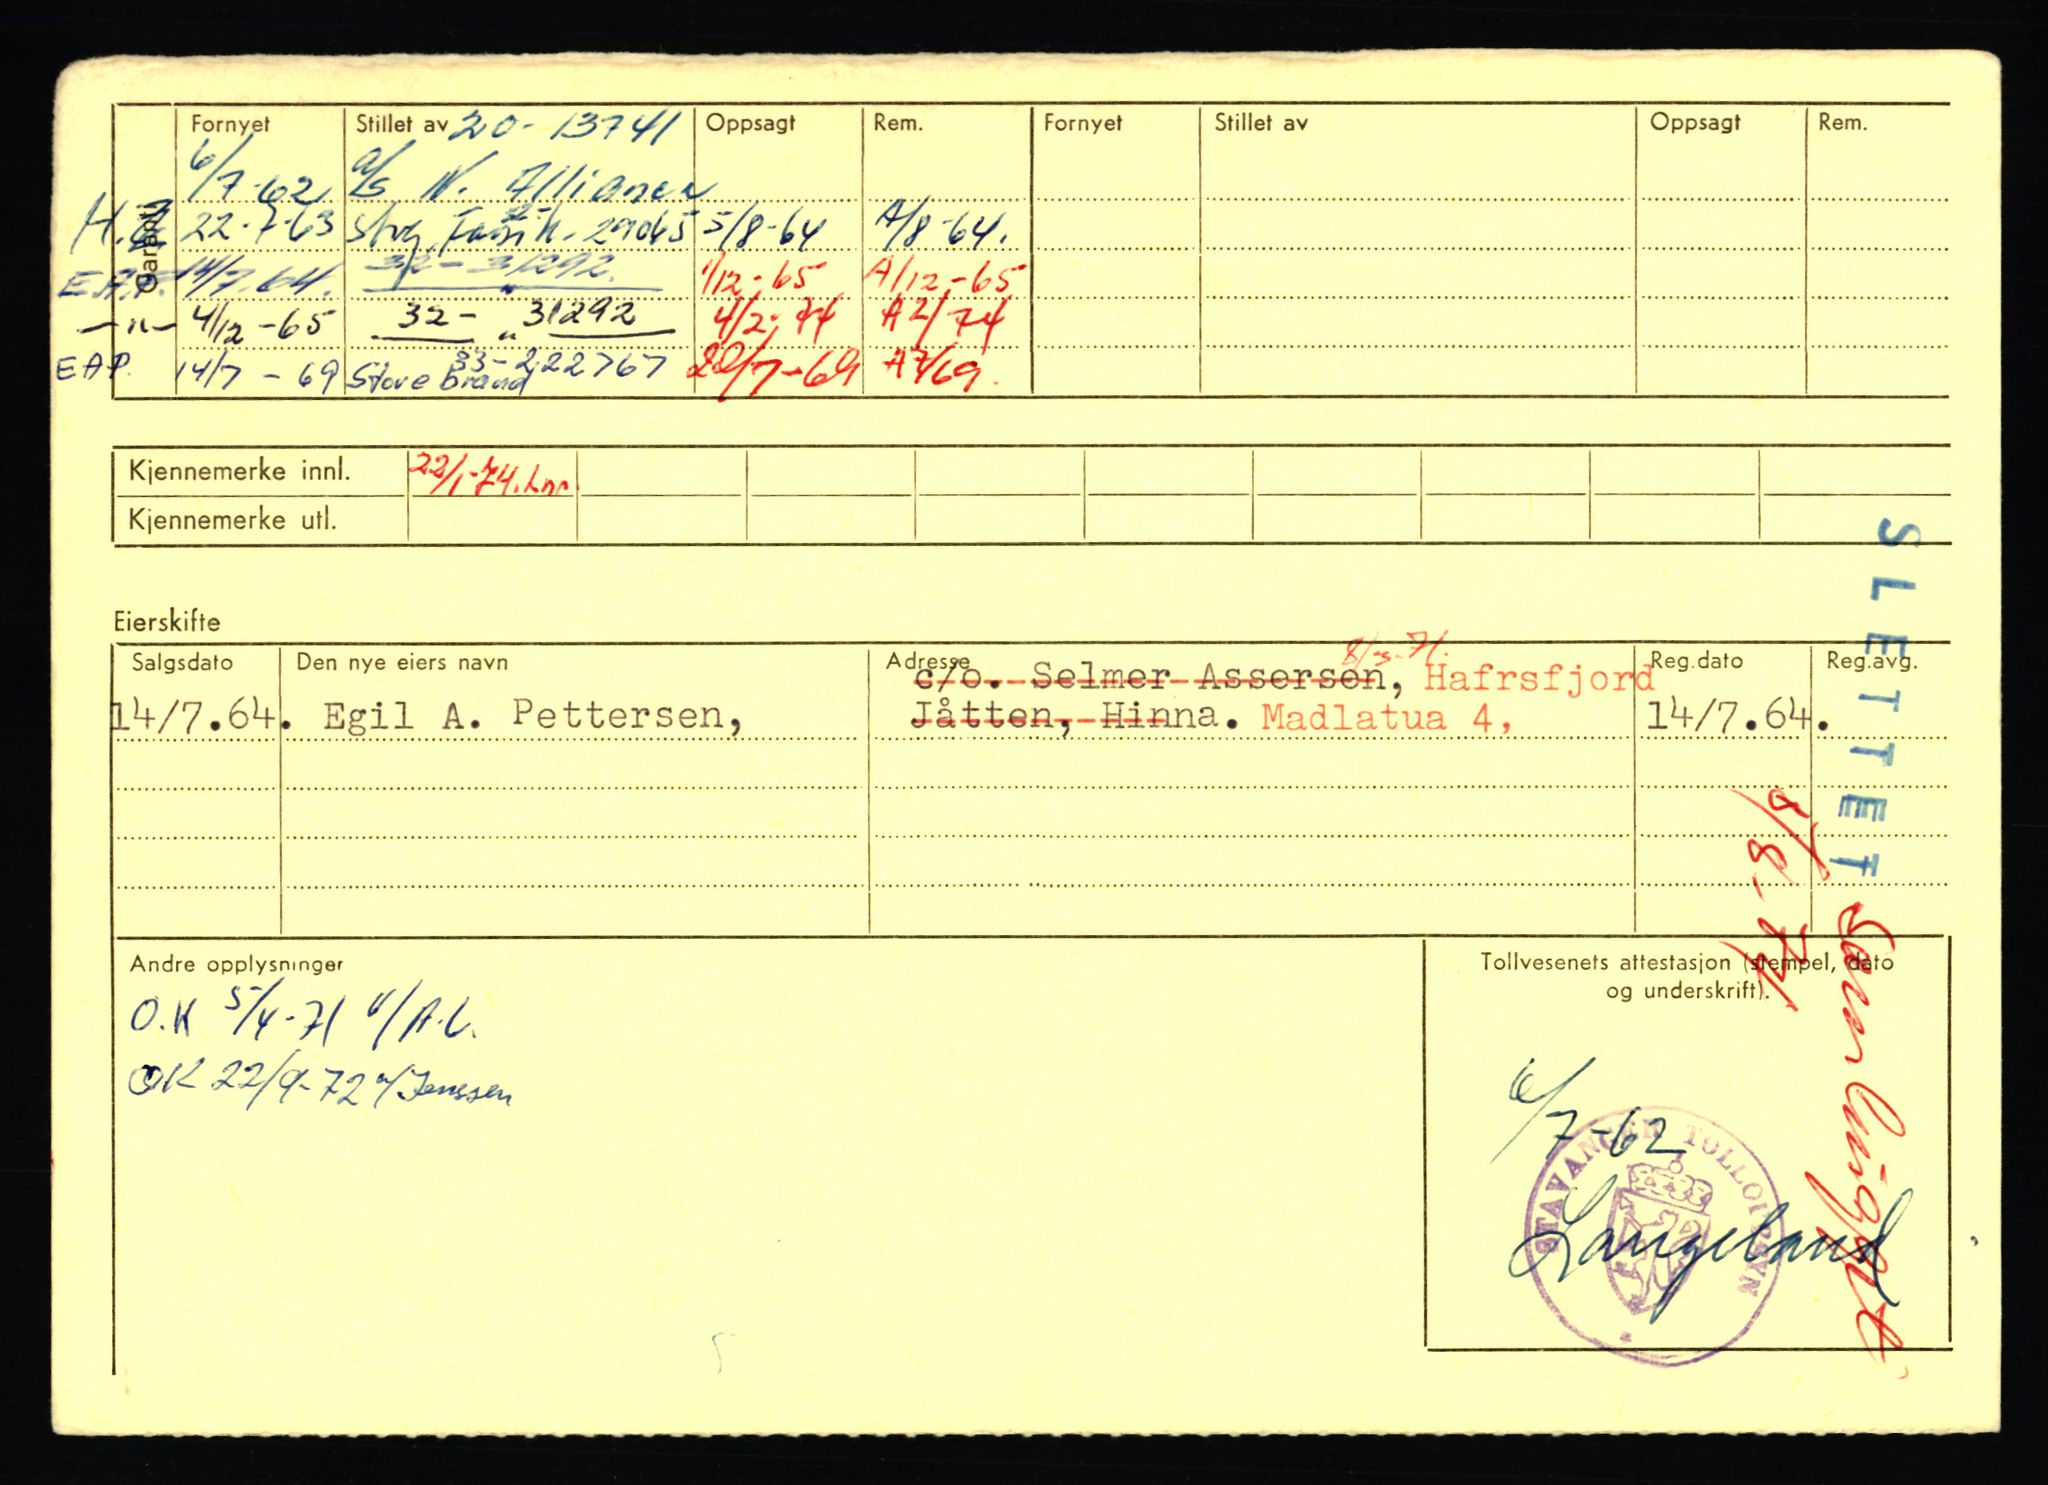 Garanti
Fornyet Stillet av 20-13741 Oppsagt Rem. Fornyet Stillet av Oppsagt Rem.
6/7-62 a/s N. Alliance
22-7-63 29045 5/8-64 A/8-64.
E.A.P. 14/7.64. 32-31292. 1/12-65 A/12-65
-"- 4/12-65 32- " 31292 4/2-74 A2/74
EAP. 14/7-69 Storebrand 33-222767 20/7-69 A7/69.
Kjennemerke innl. 22/1-74.
Kjennemerke utl.
SLETTET
8/8-74
Eierskifte
Salgsdato Den nye eiers navn Adresse Reg.dato Reg.avg.
c/o. Selmer Assersen, Hafrsfjord
14/7.64. Egil A. Pettersen, Jåtten, Hinna. Madlatua 4, 14/7.64.
Andre opplysninger
O.K 5/4-71 v/A.L.
OK 22/9-72 v/Jenssen
Tollvesenets attestasjon (stempel, dato
og underskrift).
6/7-62
STAVANGER TOLLOPPSYN
Langeland